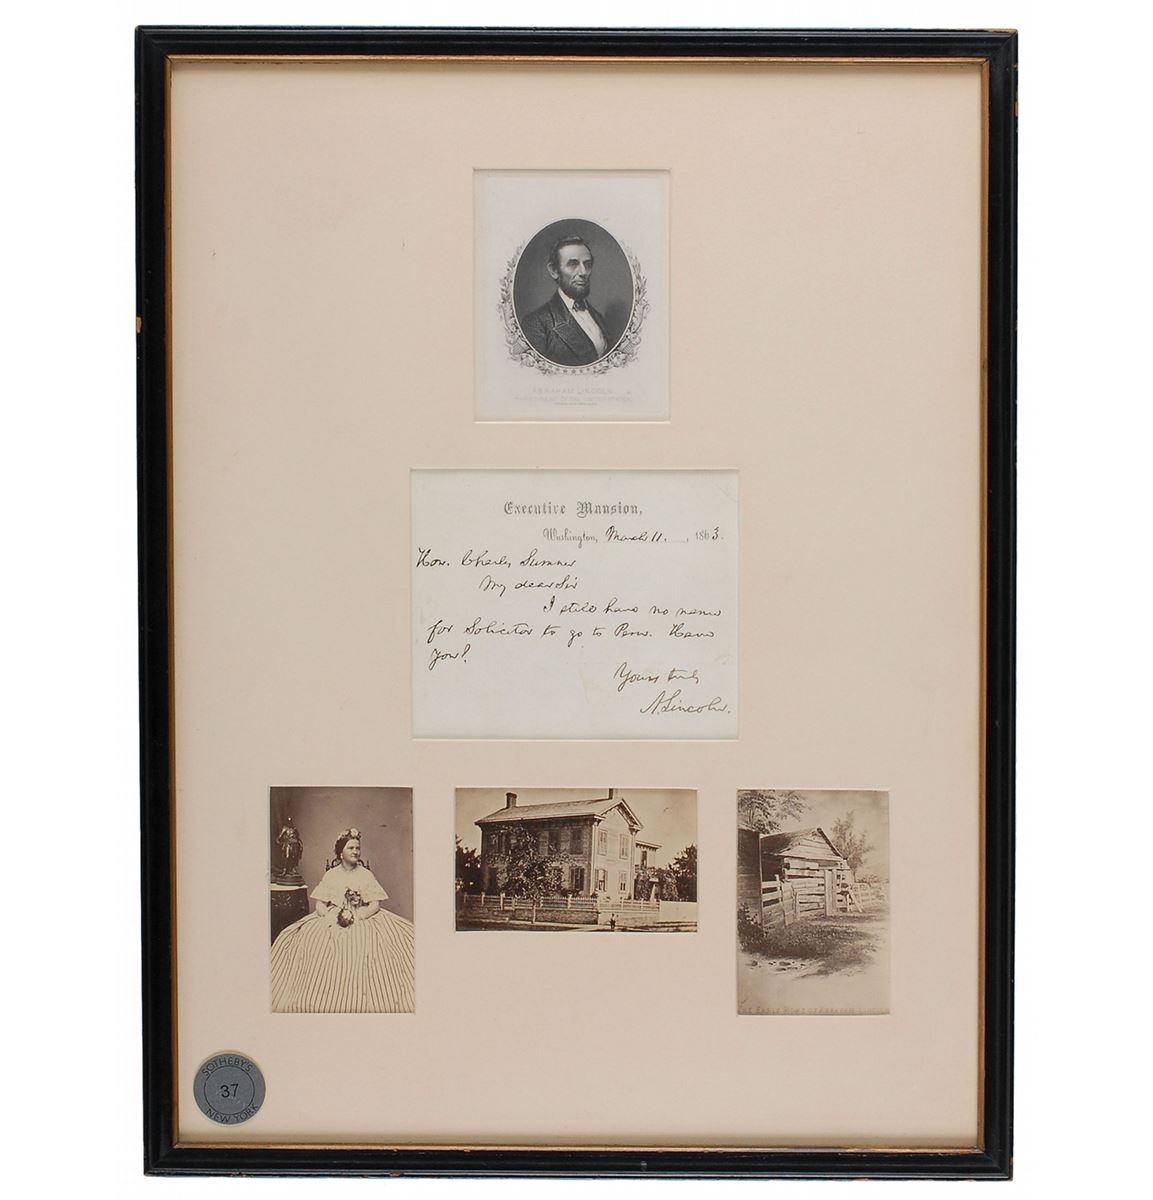 ABRAHAM LINCOLN
PRESIDENT OF THE UNITED STATES
Executive Mansion,
Washington, March 11, 1863.
Hon. Charles Sumner
My dear Sir
I still have no name
for Solicitor to go to Peru. Have
you?
Yours truly
A. Lincoln.
THE EARLY HOME OF ABRAHAM
SOTHEBY'S
37
NEW YORK